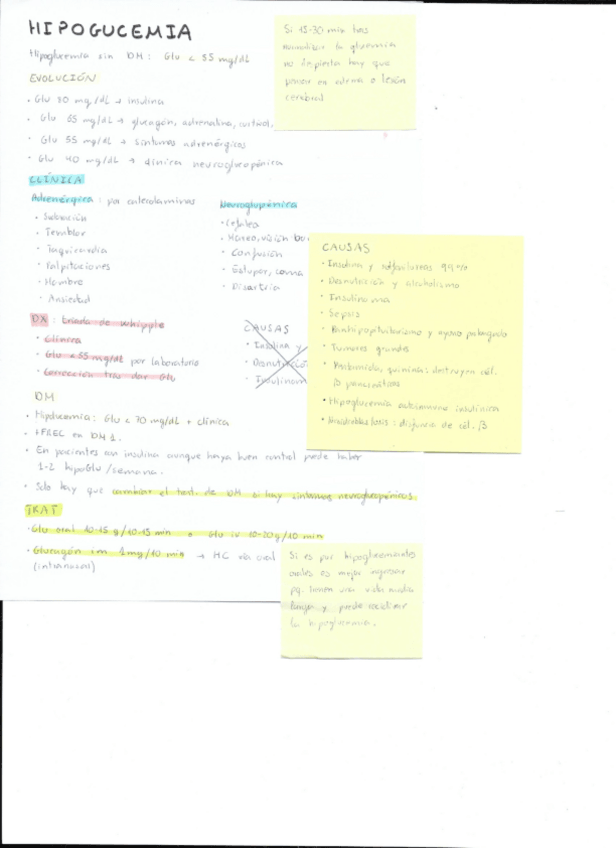 HIPOGUCEMIA
Hipoglucemia sin DM: Glu < 55 mg/dL
EVOLUCIÓN
· Glu 80 mg/dL → insulina
· Glu 65 mg/dL → glucagón, adrenalina, cortisol,
· Glu 55 mg/dL → síntomas adrenérgicos
· Glu 40 mg/dL → clínica neuroglucopénica
CLÍNICA
Adrenérgica: por catecolaminas
· Sudoración
· Temblor
· Taquicardia
· Palpitaciones
· Hambre
· Ansiedad
Neuroglupénica
· Cefalea
· Mareo, visión bo
· Confusión
· Estupor, coma
· Disartria
DX: triada de Whipple
· Clínica
· Glu < 55 mg/dL por laboratorio
· Corrección tras dar Glu
CAUSAS
· Insulina y
· Desnutrición
· Insulinom
DM
· Hipoglucemia: Glu < 70 mg/dL + clínica
· +FREC en DM 1.
· En pacientes con insulina aunque haya buen control puede haber
1-2 hipoGlu/semana.
· Solo hay que cambiar el trat. de DM si hay síntomas neuroglucopénicos.
TRAT
· Glu oral 10-15 g/10-15 min o Glu iv 10-20g/10 min
· Glucagón im 1mg/10 min → HC vía oral
(intranasal)
Si 15-30 min tras
normalizar la glucemia
no despierta hay que
pensar en edema o lesión
cerebral
CAUSAS
· Insulina y sulfonilureas 99%
· Desnutrición y alcoholismo
· Insulinoma
· Sepsis
· Panhipopituitarismo y ayuno prolongado
· Tumores grandes
· Pentamidina, quinina: destruyen cél.
β pancreáticas
· Hipoglucemia autoinmune insulínica
· Nesidioblastosis: disfunción de cél. β
Si es por hipoglucemiantes
orales es mejor ingresar
pq. tienen una vida media
larga y puede recidivar
la hipoglucemia.